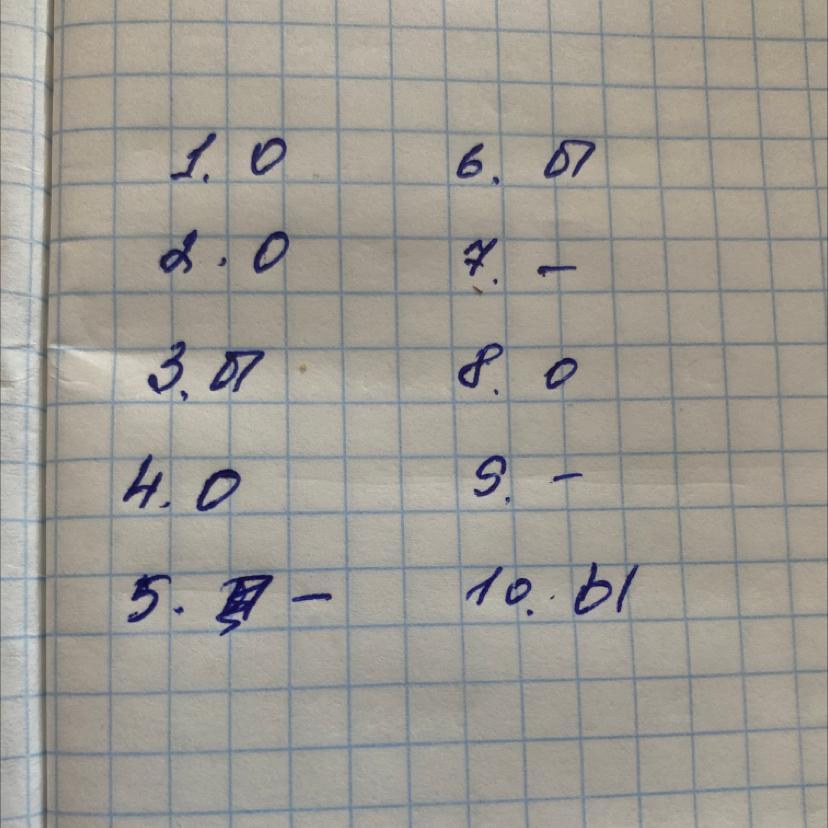 1. О
2. О
3. П
4. О
5. –
6. П
7. –
8. О
9. –
10. Ы